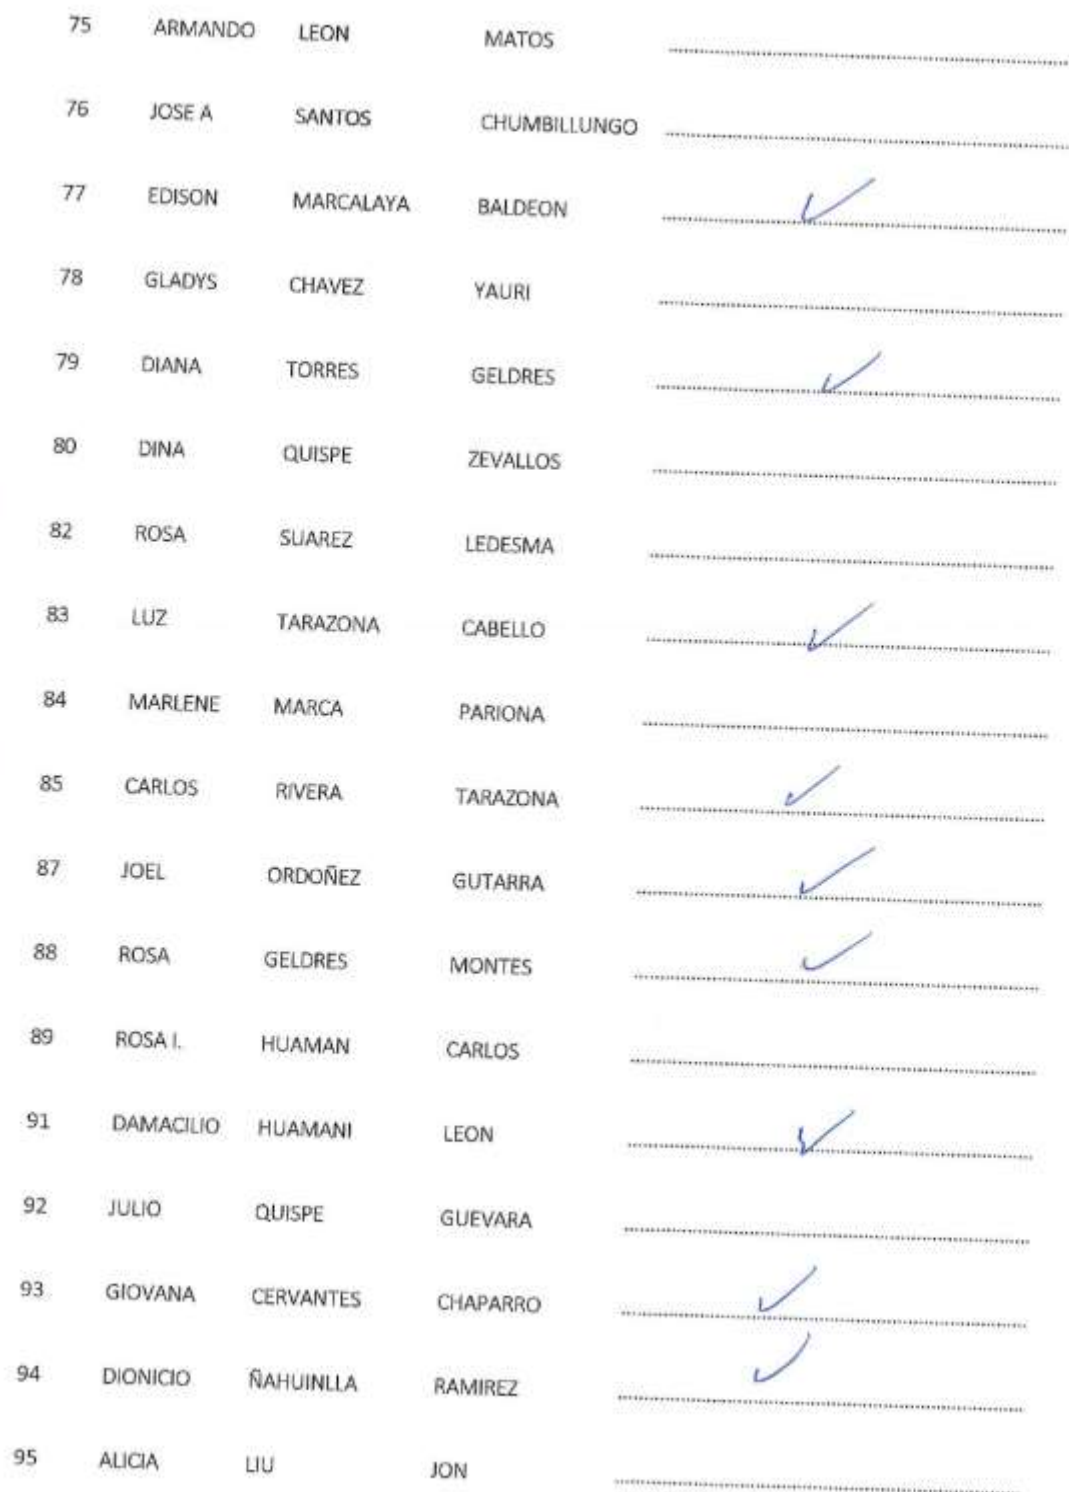 75 ARMANDO LEON MATOS
76 JOSE A SANTOS CHUMBILLUNGO
77 EDISON MARCALAYA BALDEON
78 GLADYS CHAVEZ YAURI
79 DIANA TORRES GELDRES
80 DINA QUISPE ZEVALLOS
82 ROSA SUAREZ LEDESMA
83 LUZ TARAZONA CABELLO
84 MARLENE MARCA PARIONA
85 CARLOS RIVERA TARAZONA
87 JOEL ORDOÑEZ GUTARRA
88 ROSA GELDRES MONTES
89 ROSA I. HUAMAN CARLOS
91 DAMACILIO HUAMANI LEON
92 JULIO QUISPE GUEVARA
93 GIOVANA CERVANTES CHAPARRO
94 DIONICIO ÑAHUINLLA RAMIREZ
95 ALICIA LIU JON